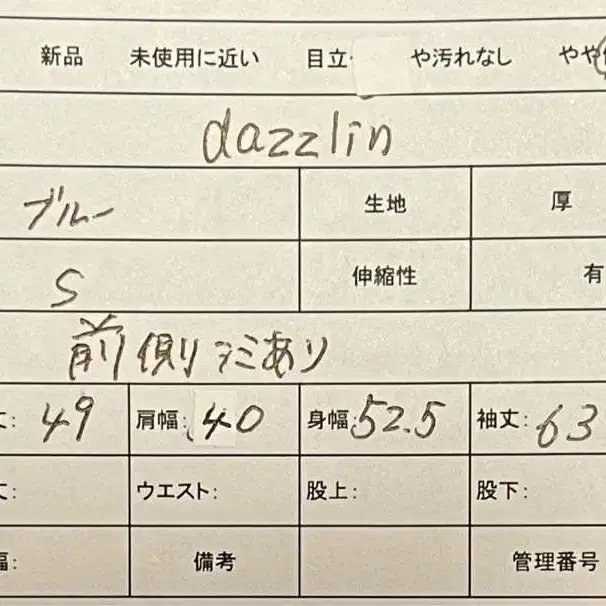 新品 未使用に近い 目立 や汚れなし やや
dazzlin
ブルー 生地 厚
S 伸縮性 有
前側シミあり
丈: 49 肩幅: 40 身幅: 52.5 袖丈: 63
丈: ウエスト: 股上: 股下:
幅: 備考 管理番号